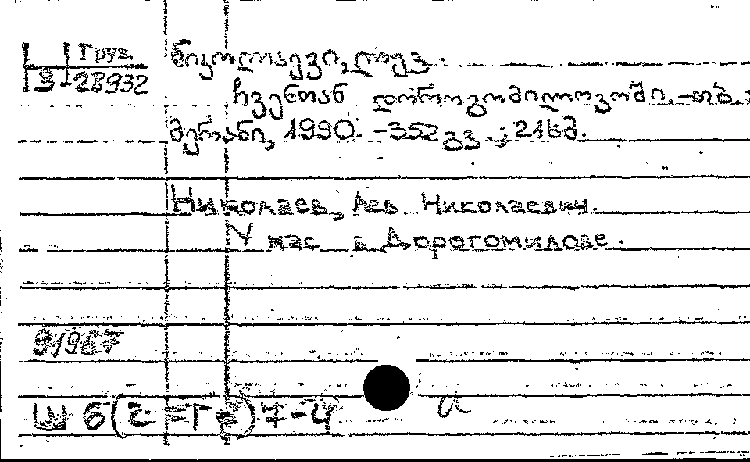 Груз.
3-28932
ნიკოლაევი, ლევ.
ჩვენთან დოროგომილოვოში. -თბ.:
მერანი, 1990. -352 გვ.; 21სმ.
Николаев, Лев Николаевич.
У нас в Дорогомилове.
91987
Ш 6(2=Г2)7-4